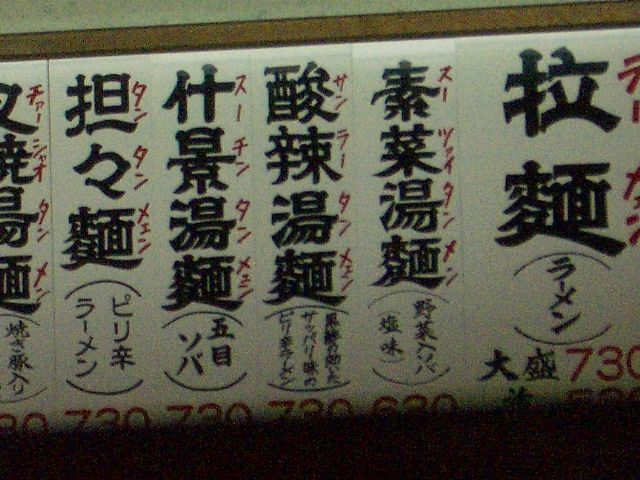 拉麺
(ラーメン)
大盛 730
素菜湯麺
スー ツァイ タン メン
(野菜ソバ
塩味)
630
酸辣湯麺
サン ラー タン メン
サッパリ味の
ピリ辛ラーメン)
730
什景湯麺
スー チン タン メン
(五目
ソバ)
730
担々麺
タン タン メン
(ピリ辛
ラーメン)
730
叉焼湯麺
チャー シャオ タン メン
焼き豚入り